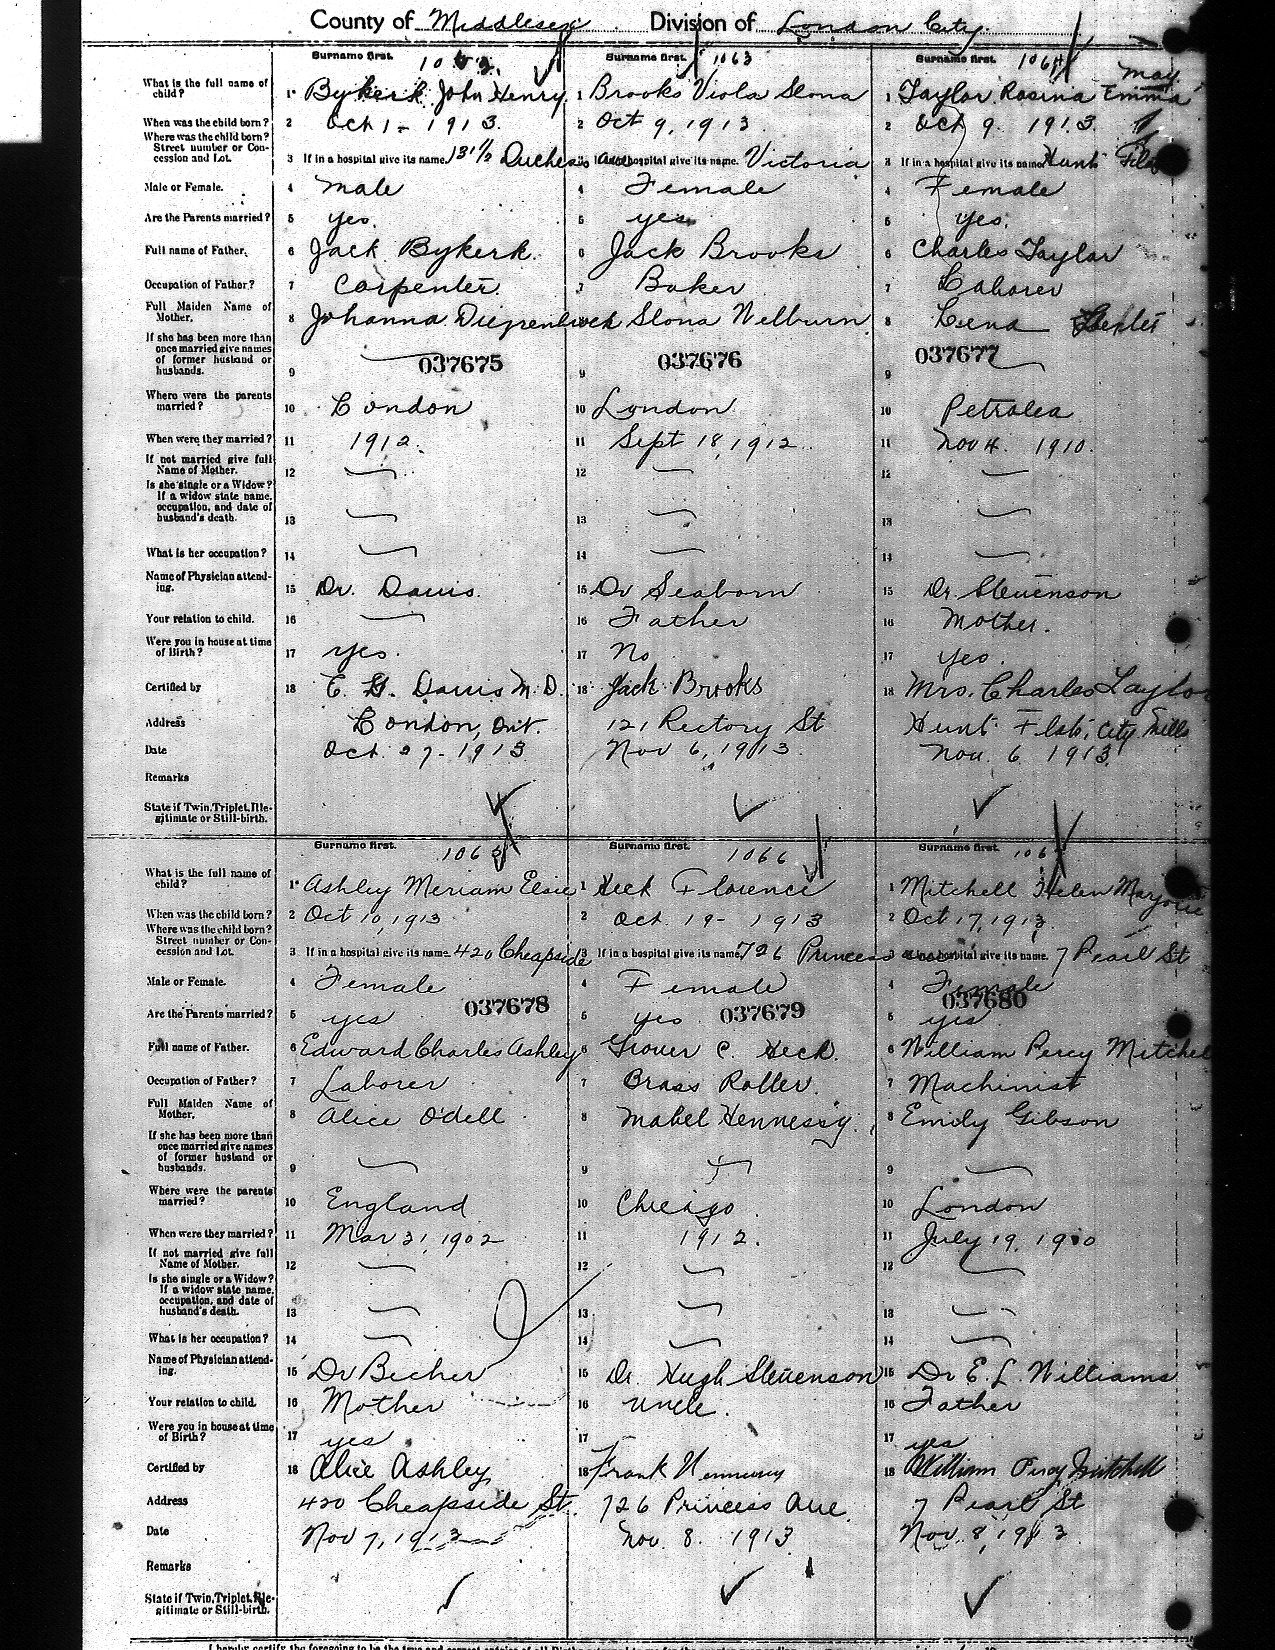 County of Middlesex Division of London City.
Surname first. Surname first. 1063 Surname first. 1064
May
What is the full name of child? 1 Bykerk John Henry 1 Brooks Viola Slona 1 Taylor Rosina Emma
When was the child born? 2 Oct 1 - 1913. 2 Oct 9, 1913 2 Oct 9. 1913.
Where was the child born?
Street number or Concession and Lot. 3 If in a hospital give its name. 131½ Duchess Ave 3 If in a hospital give its name. Victoria 3 If in a hospital give its name. Hunt Flats
Male or Female. 4 Male 4 Female 4 Female
Are the Parents married? 5 yes. 5 yes 5 yes.
Full name of Father. 6 Jack Bykerk. 6 Jack Brooks 6 Charles Taylor
Occupation of Father? 7 Carpenter. 7 Baker 7 Laborer
Full Maiden Name of Mother. 8 Johanna 8 Slona Welburn 8 Lena
If she has been more than once married give names of former husband or husbands. 9 037675 9 037676 9 037677
Where were the parents married? 10 London 10 London 10 Petrolea
When were they married? 11 1912. 11 Sept 18, 1912. 11 Nov 4. 1910.
If not married give full Name of Mother. 12 12 12
Is she single or a Widow?
If a widow state name, occupation, and date of husband's death. 13 13 13
What is her occupation? 14 14 14
Name of Physician attending. 15 Dr. Davis. 15 Dr Seaborn 15 Dr. Stevenson
Your relation to child. 16 16 Father 16 Mother.
Were you in house at time of Birth? 17 yes. 17 No 17 yes.
Certified by 18 E. G. Davis M.D. 18 Jack Brooks 18 Mrs. Charles Taylor
Address London, Ont. 121 Rectory St Hunt Flats, City Mills
Date Oct. 27 - 1913 Nov 6, 1913. Nov. 6 1913.
Remarks
State if Twin, Triplet, Illegitimate or Still-birth.
Surname first. 1065 Surname first. 1066 Surname first.
What is the full name of child? 1 Ashley Meriam Elsie 1 Heck Florence 1 Mitchell Helen Marjorie
When was the child born? 2 Oct 10, 1913 2 Oct 19 - 1913 2 Oct 17, 1913
Where was the child born?
Street number or Concession and Lot. 3 If in a hospital give its name. 420 Cheapside 3 If in a hospital give its name. 726 Princess Ave 3 If in a hospital give its name. 7 Pearl St
Male or Female. 4 Female 4 Female 4 Female
Are the Parents married? 5 yes 037678 5 yes 037679 5 yes 037680
Full name of Father. 6 Edward Charles Ashley 6 Grover C. Heck. 6 William Percy Mitchell
Occupation of Father? 7 Laborer 7 Brass Roller. 7 Machinist
Full Maiden Name of Mother. 8 Alice O'dell 8 Mabel Hennessy. 8 Emily Gibson
If she has been more than once married give names of former husband or husbands. 9 9 9
Where were the parents married? 10 England 10 Chicago 10 London
When were they married? 11 Mar 31, 1902 11 1912. 11 July 19, 1910
If not married give full Name of Mother. 12 12 12
Is she single or a Widow?
If a widow state name, occupation, and date of husband's death. 13 13 13
What is her occupation? 14 14 14
Name of Physician attending. 15 Dr Becher 15 Dr. Hugh Stevenson 15 Dr E. L. Williams
Your relation to child. 16 Mother 16 Uncle. 16 Father
Were you in house at time of Birth? 17 yes 17 17 yes
Certified by 18 Alice Ashley 18 Frank Hennessy 18 William Percy Mitchell
Address 420 Cheapside St. 726 Princess Ave. 7 Pearl St
Date Nov 7, 1913 Nov. 8. 1913. Nov. 8, 1913
Remarks
State if Twin, Triplet, Illegitimate or Still-birth.